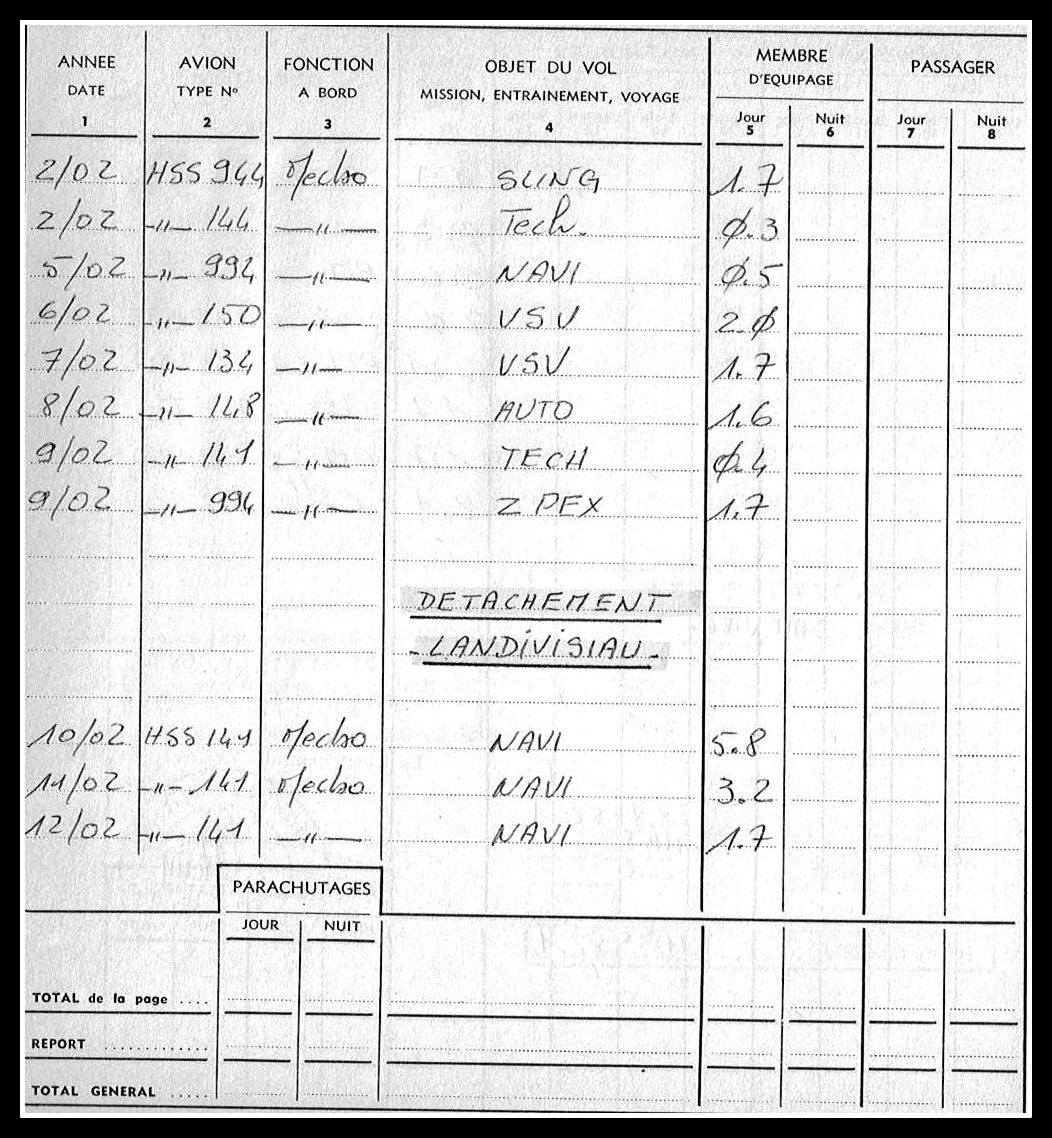 ANNEE AVION FONCTION OBJET DU VOL MEMBRE D'EQUIPAGE PASSAGER
DATE TYPE Nº A BORD MISSION, ENTRAINEMENT, VOYAGE Jour Nuit Jour Nuit
1 2 3 4 5 6 7 8
2/02 HSS 944 Mecbo SLING 1.7
2/02 —"— 144 —"— Tech. Ø.3
5/02 —"— 994 —"— NAVI Ø.5
6/02 —"— 150 —"— VSV 2.Ø
7/02 —"— 134 —"— VSV 1.7
8/02 —"— 148 —"— AUTO 1.6
9/02 —"— 141 —"— TECH Ø.4
9/02 —"— 994 —"— Z PEX 1.7
DETACHEMENT
- LANDIVISIAU -
10/02 HSS 141 Mecbo NAVI 5.8
11/02 —"— 141 Mecbo NAVI 3.2
12/02 —"— 141 —"— NAVI 1.7
PARACHUTAGES
JOUR NUIT
TOTAL de la page ....
REPORT ............
TOTAL GENERAL .....